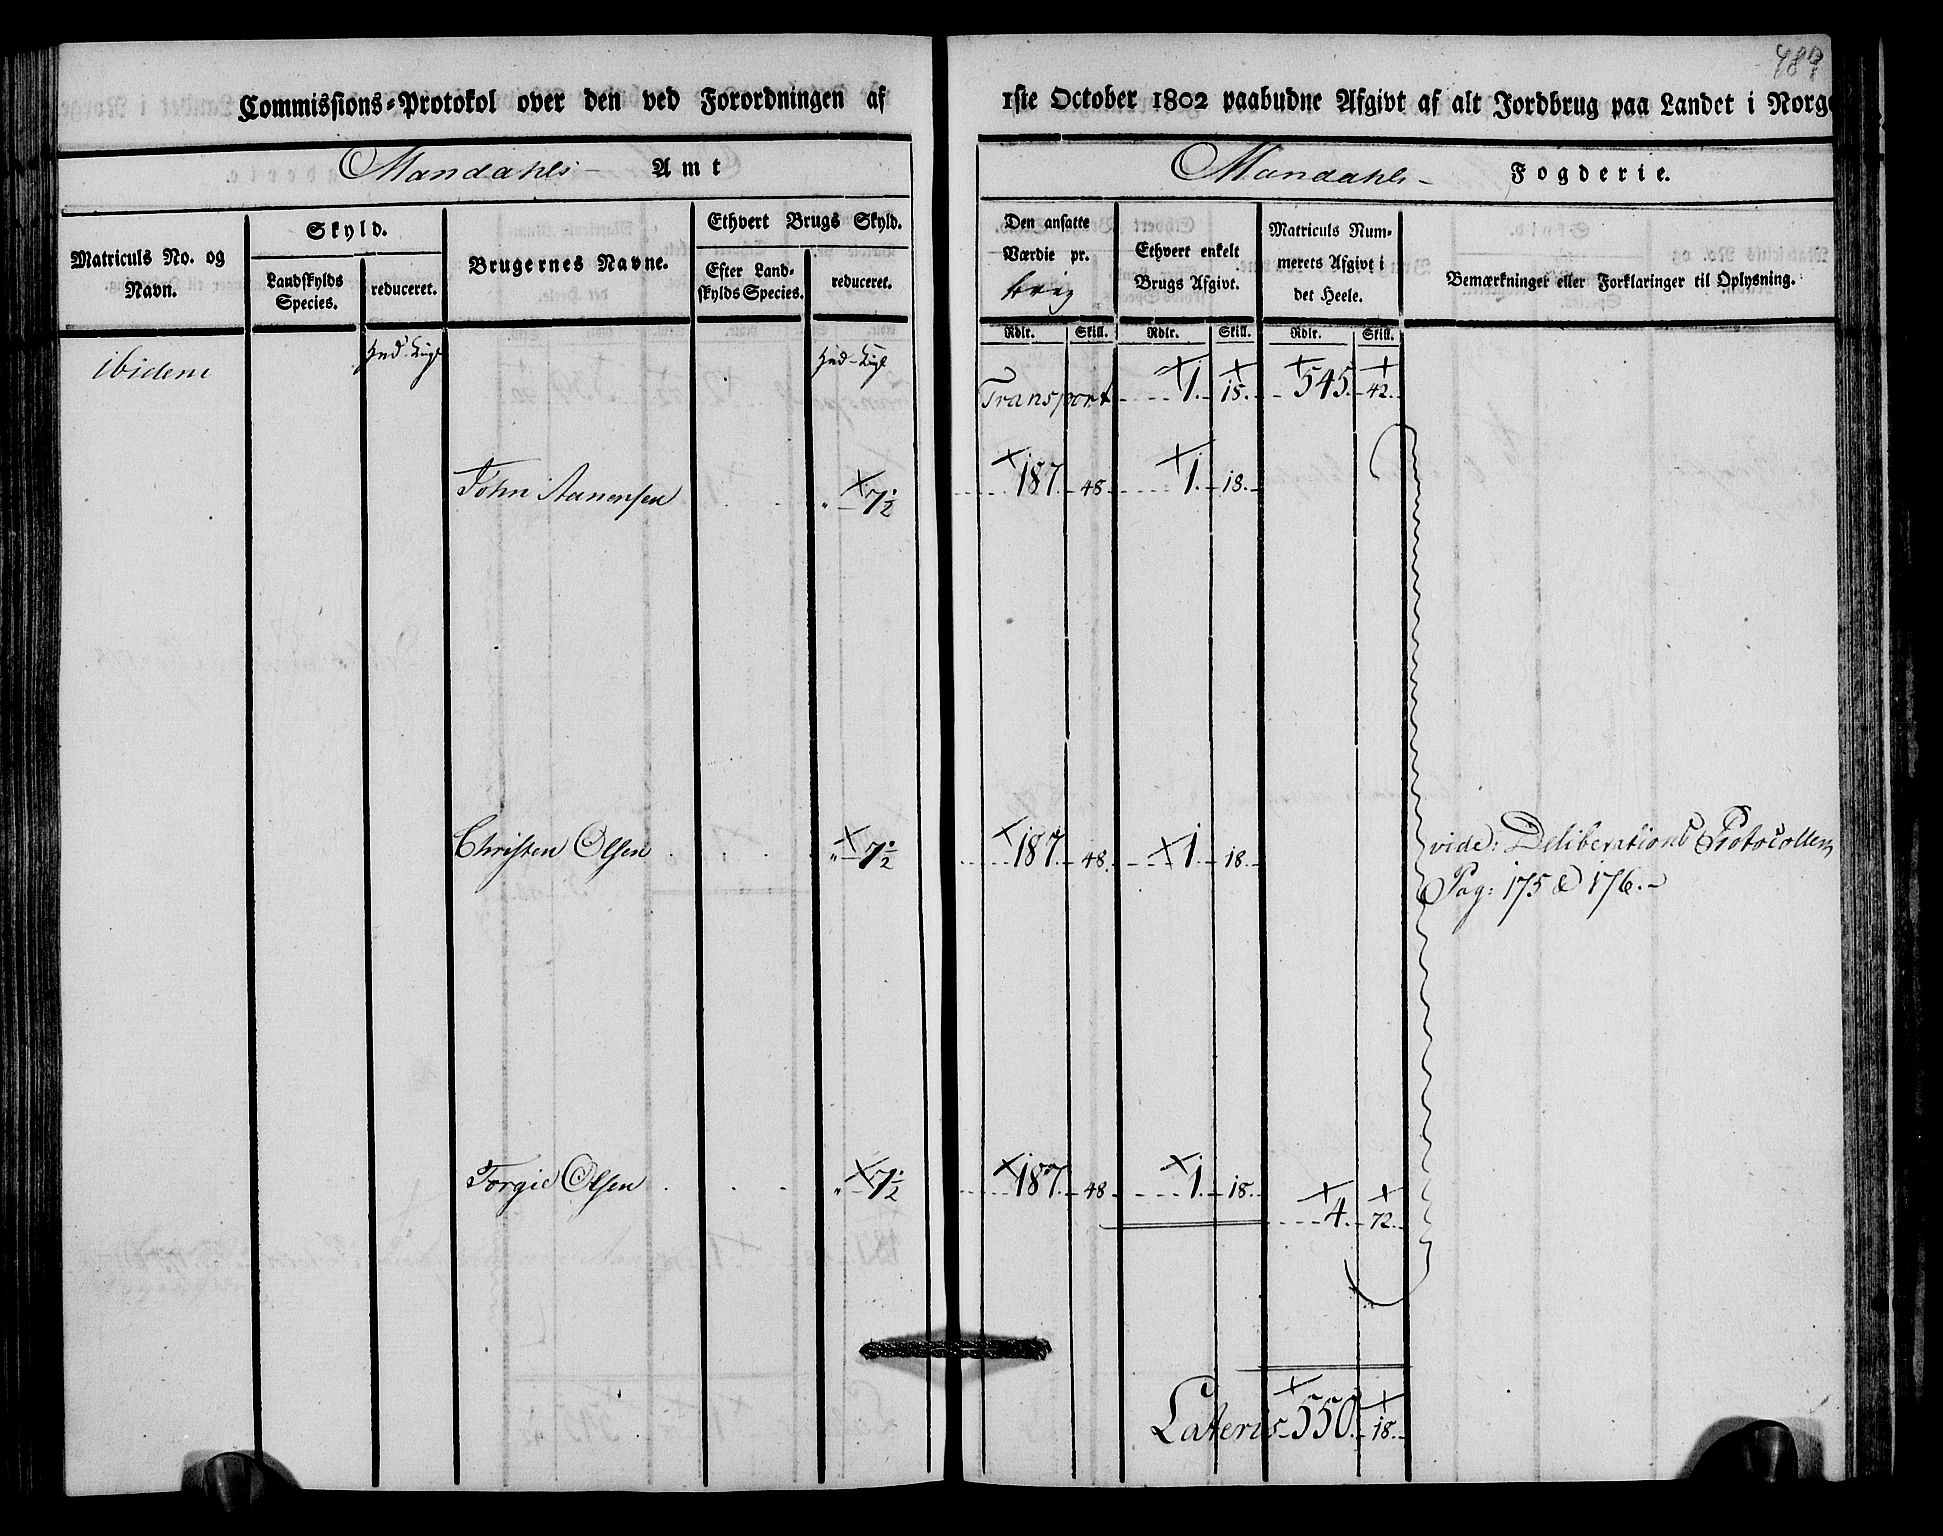 Commissions=Protokol over den ved Forordningen af 1ste October 1802 paabudne Afgivt af alt Jordbrug paa Landet i Norge
Mandahls- Amt
Mandahls- Fogderie.
Matriculs No. og Navn.
Skyld.
Landskylds Species.
reduceret.
Brugernes Navne.
Ethvert Brugs Skyld.
Efter Landskylds Species.
reduceret.
Den ansatte Værdie pr.
Ethvert enkelt Brugs Afgivt.
Matriculs Nummerets Afgivt i det Heele.
Bemærkninger eller Forklaringer til Oplysning.
Rdlr. Skill. Rdlr. Skill. Rdlr. Skill.
ibidem
Transport 1. 18. 545. 42.
John Aanensen " 7½ 187. 48 1. 18.
Christen Olsen " 7½ 187. 48. 1. 18.
vide: Deliberations Protocollen
Pag: 175 & 176.-
Torgie Olsen " 7½ 187. 48 1. 18.
4. 72.
Lateris 550. 18.